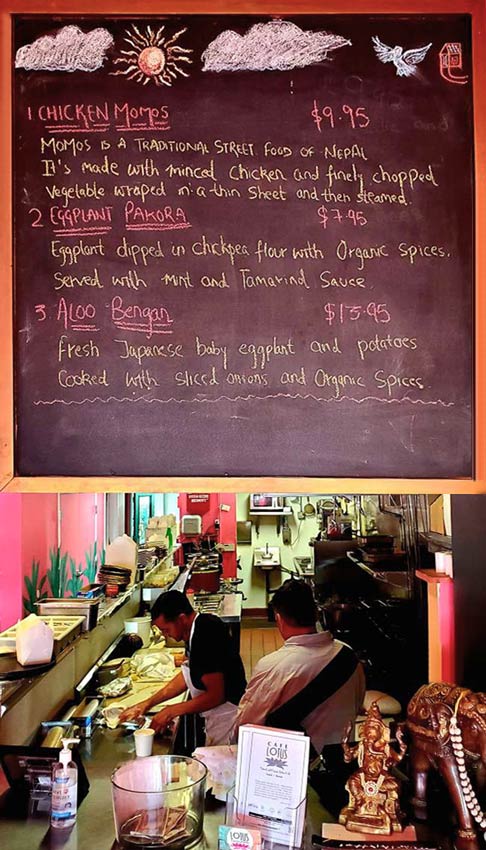 1 CHICKEN MOMOS $9.95
MOMOS IS A TRADITIONAL STREET FOOD OF NEPAL
It's made with minced chicken and finely chopped
vegetable wraped in a thin sheet and then steamed.
2 EGGPLANT PAKORA $7.95
Eggplant dipped in chickpea flour with Organic Spices.
Served with mint and Tamarind Sauce.
3 ALOO Bengan $15.95
Fresh Japanese baby eggplant and potatoes
Cooked with sliced onions and Organic Spices
CAFE
LOTUS
LOTUS